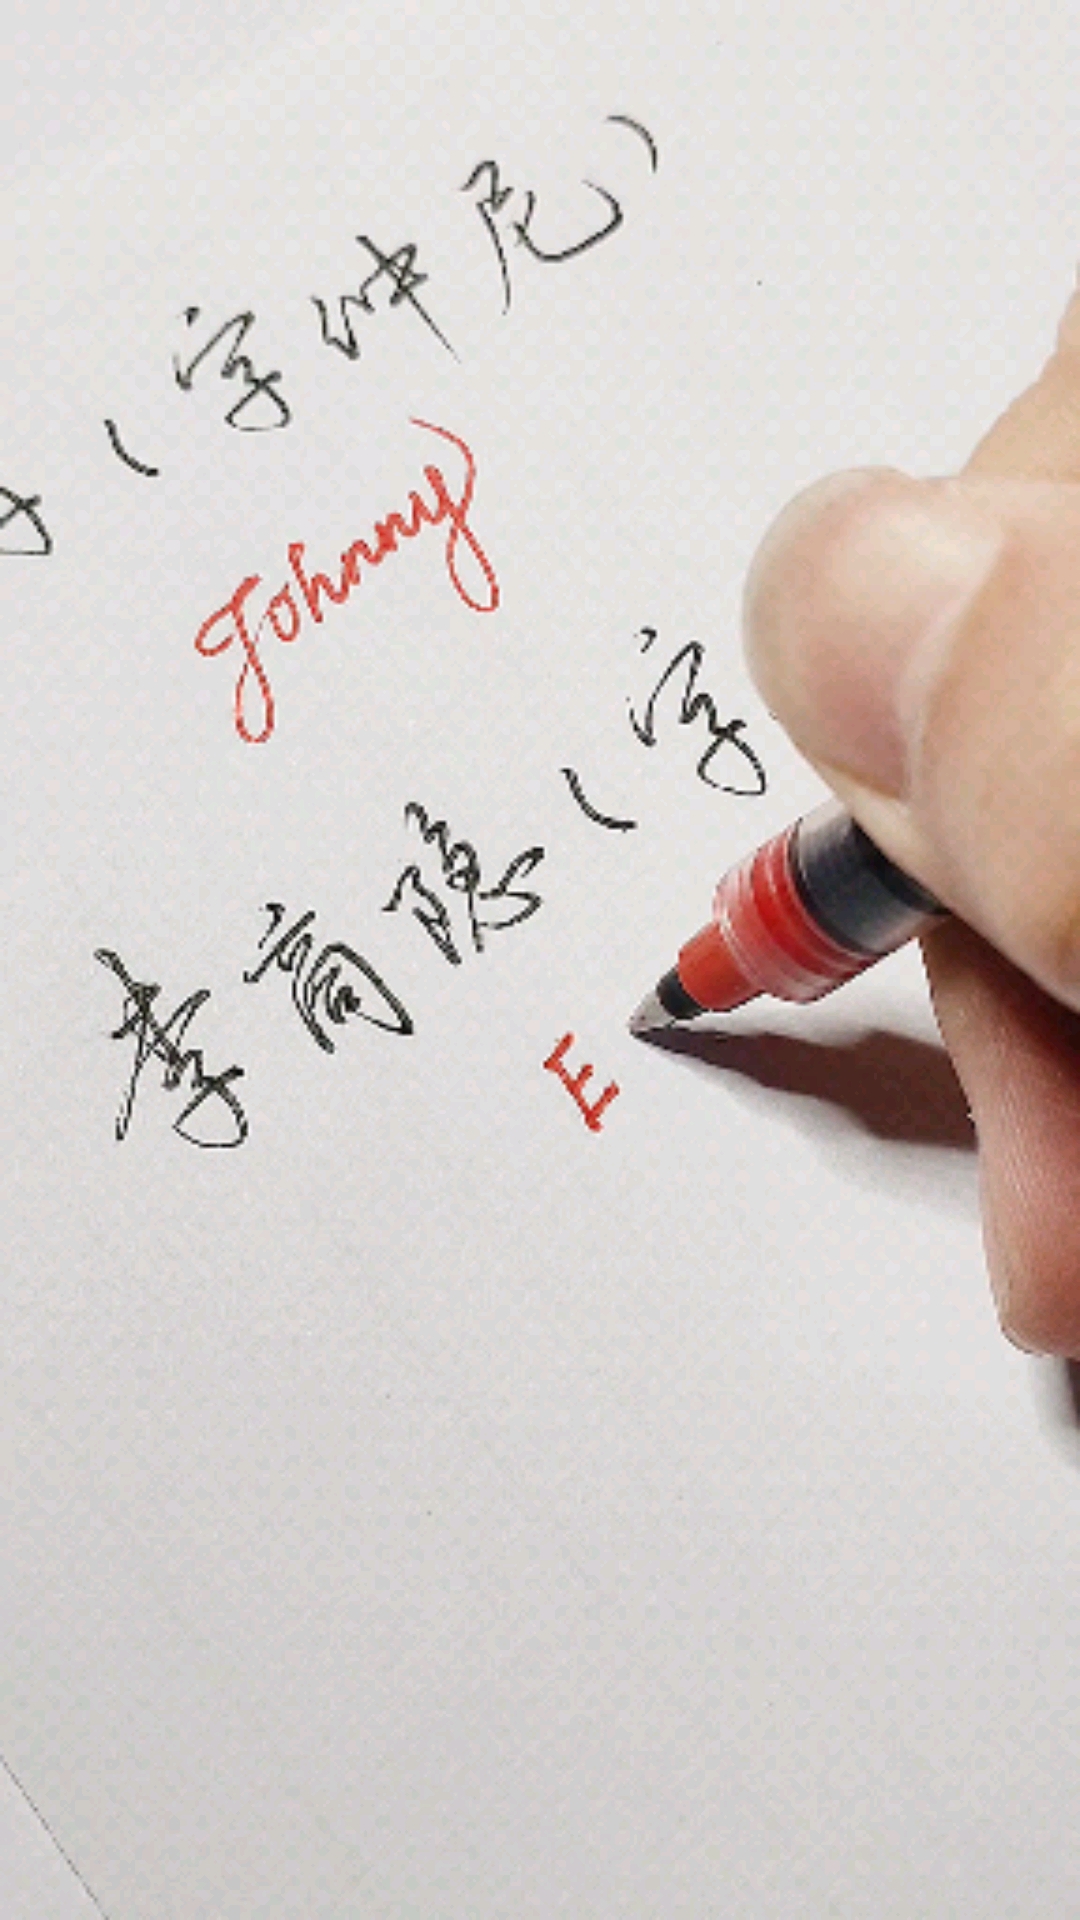 (字仲尼)
Johnny
李商隐(字
E